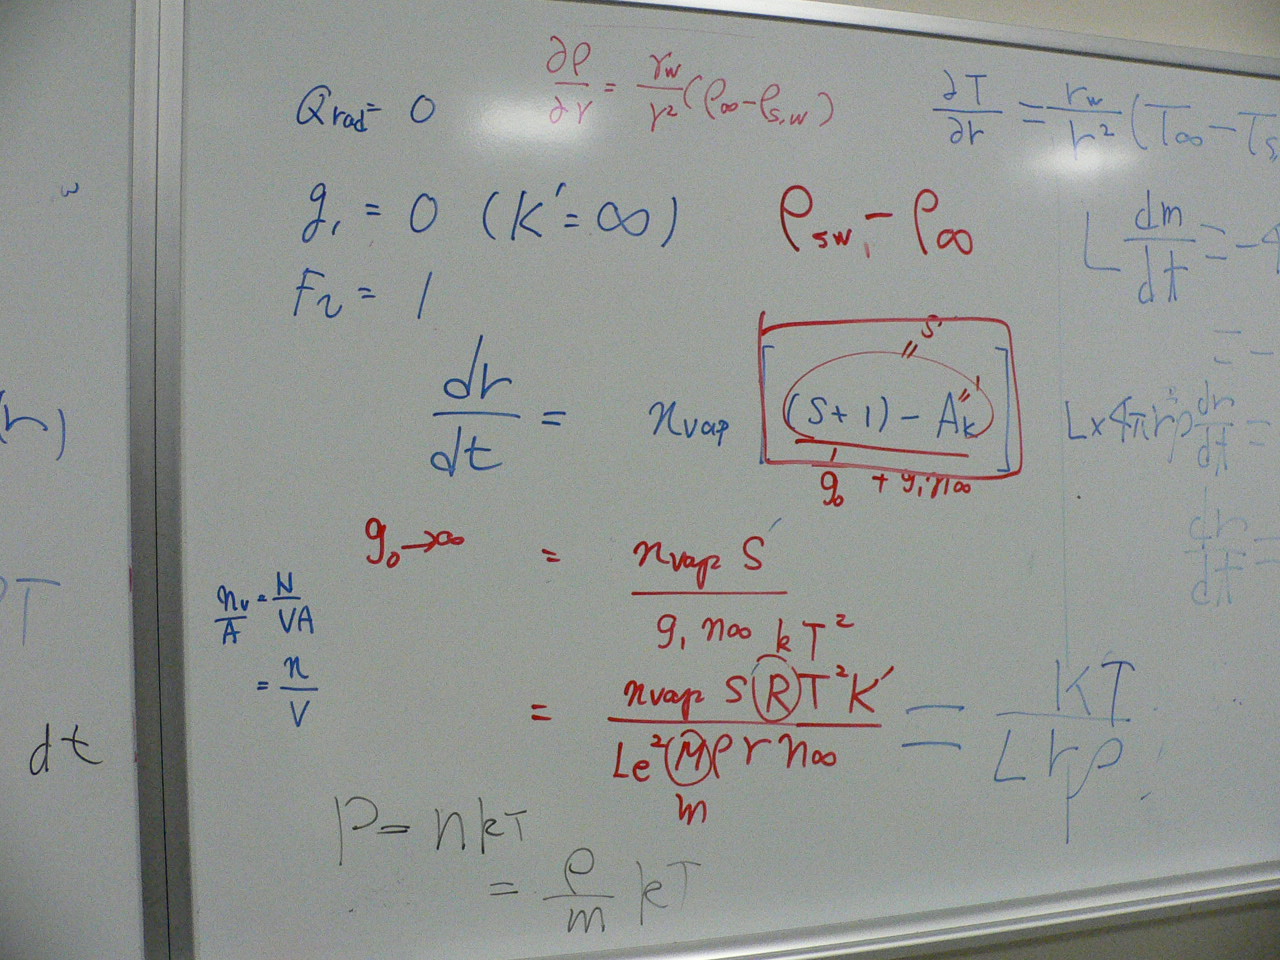 Qrad = 0
∂ρ/∂r = rw/r² (ρ∞ - ρs,w)
∂T/∂r = rw/r² (T∞ - Ts
w
g₁ = 0 (K' = ∞)
ρsw, - ρ∞
L dm/dt = -4
F₂ = 1
= -
S'
dr/dt = nvap [(S+1) - Ak]
g₀ + g₁n∞
L×4πr²ρ dr/dt =
r)
g₀→∞ = nvap S' / g₁ n∞
dr/dt =
nv/A = N/VA
= n/V
kT²
= nvap S R T² K' / Le² M ρ r n∞ = KT / Lrρ
m
T
dt
P = nkT
= ρ/m kT